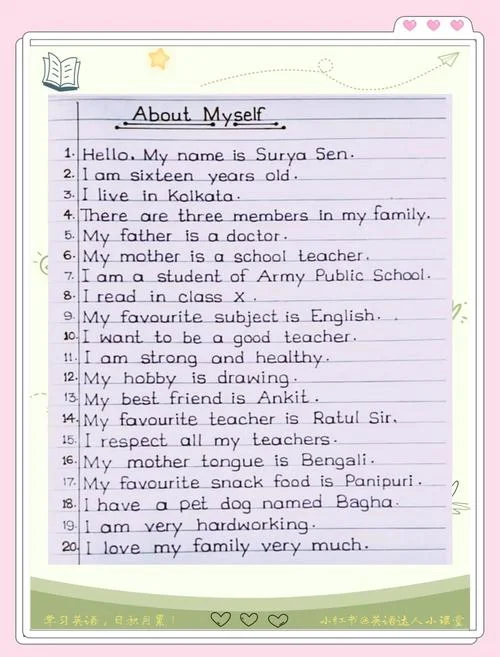 About Myself
1. Hello. My name is Surya Sen.
2. I am sixteen years old.
3. I live in Kolkata.
4. There are three members in my family.
5. My father is a doctor.
6. My mother is a school teacher.
7. I am a student of Army Public School.
8. I read in class X.
9. My favourite subject is English.
10. I want to be a good teacher.
11. I am strong and healthy.
12. My hobby is drawing.
13. My best friend is Ankit.
14. My favourite teacher is Ratul Sir.
15. I respect all my teachers.
16. My mother tongue is Bengali.
17. My favourite snack food is Panipuri.
18. I have a pet dog named Bagha.
19. I am very hardworking.
20. I love my family very much.
学习英语，日积月累！ 小红书@英语达人小课堂